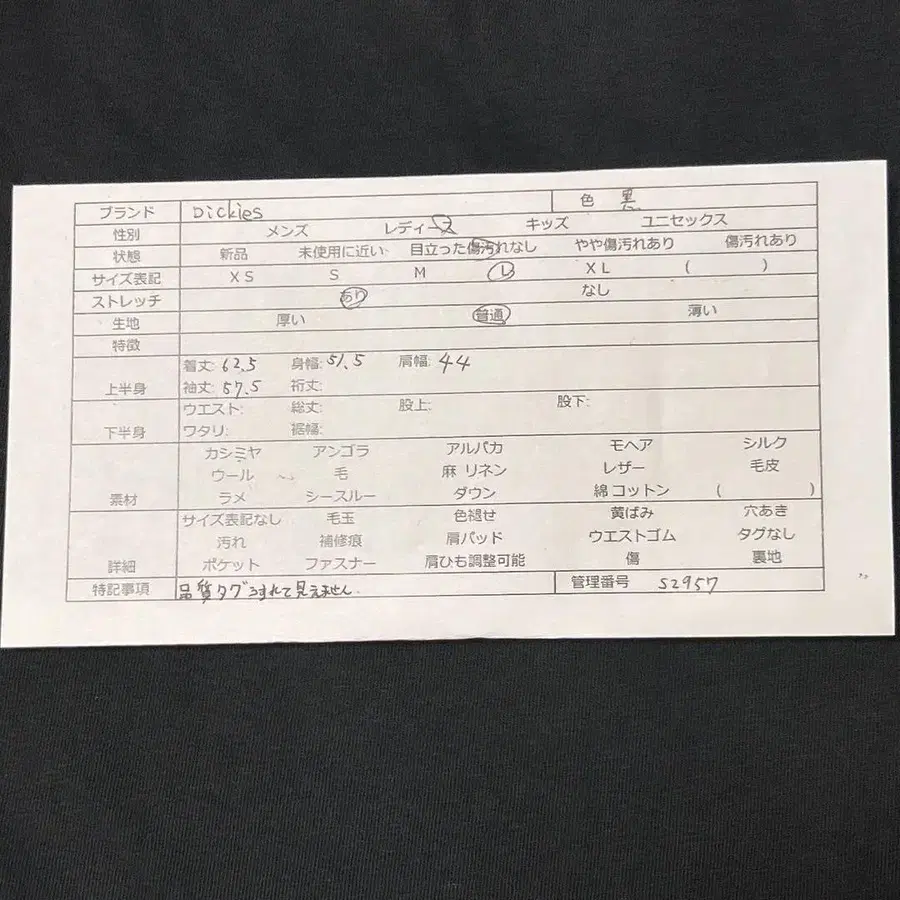 ブランド Dickies 色 黒
性別 メンズ レディース キッズ ユニセックス
状態 新品 未使用に近い 目立った傷汚れなし やや傷汚れあり 傷汚れあり
サイズ表記 XS S M L XL ( )
ストレッチ あり なし
生地 厚い 普通 薄い
特徴
上半身 着丈: 62.5 身幅: 51.5 肩幅: 44
袖丈: 57.5 裄丈:
下半身 ウエスト: 総丈: 股上: 股下:
ワタリ: 裾幅:
素材 カシミヤ アンゴラ アルパカ モヘア シルク
ウール 毛 麻 リネン レザー 毛皮
ラメ シースルー ダウン 綿 コットン ( )
詳細 サイズ表記なし 毛玉 色褪せ 黄ばみ 穴あき
汚れ 補修痕 肩パッド ウエストゴム タグなし
ポケット ファスナー 肩ひも調整可能 傷 裏地
特記事項 品質タグうすれて見えません. 管理番号 S2957